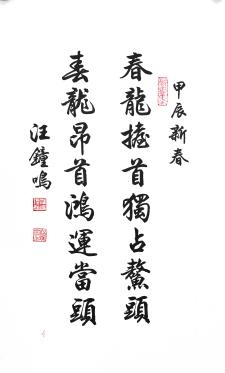 甲辰新春
春龍擡首獨占鰲頭
龍昂首鴻運當頭
汪鐘鳴